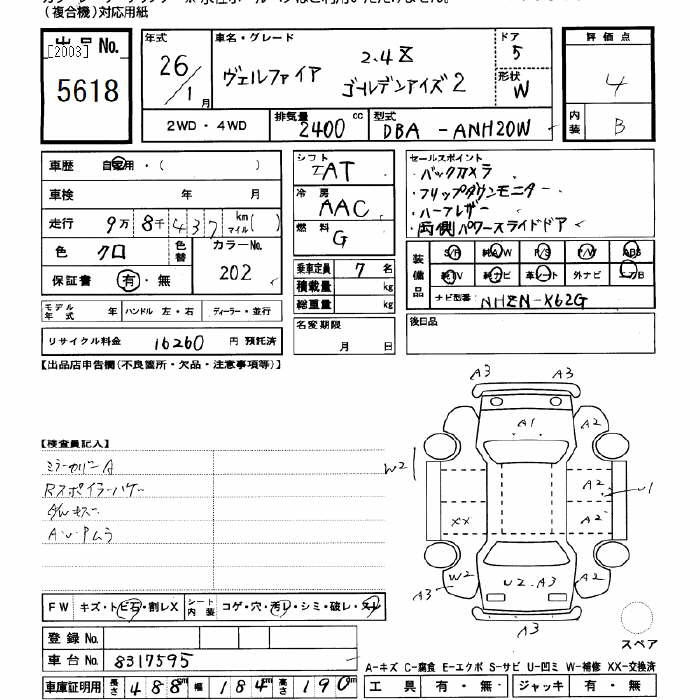 (複合機)対応用紙
出品 No.
[2003]
5618
年式
26/1月
車名・グレード
ヴェルファイア
2.4Z
ゴールデンアイズ2
ドア
5
形状
W
評価点
4
内装
B
2WD・4WD
排気量
2400 cc
型式
DBA-ANH20W
車歴 自家用・( )
車検 年 月
走行 9万8千437 km マイル( )
色 クロ
色替
カラーNo.
202
保証書 有・無
シフト
IAT
冷房
AAC
燃料
G
乗車定員 7名
積載量 kg
総重量 kg
名変期限
月 日
セールスポイント
・バックカメラ
・フリップダウンモニター
・ハーフレザー
・両側パワースライドドア
装備品
S/R 純A/W P/S P/W ABS
純TV 純ナビ 革シート 外ナビ エアB
ナビ型番 NHZN-X62G
後日品
モデル年式 年 ハンドル 左・右 ディーラー・並行
リサイクル料金 16260 円 預託済
【出品店申告欄(不良箇所・欠品・注意事項等)】
【検査員記入】
ミラーカバーA
Rスポイラーハゲ
A3 A3
A1 A2
W2
A2 U1
XX A2
A3 W2 U2.A3 A2
A3
スペア
FW キズ・トビ石・割レX
シート内装 コゲ・穴・汚レ・シミ・破レ・スレ
登録 No.
車台 No. 8317595
車庫証明用 長さ 488cm 幅 184cm 高さ 190cm
A-キズ C-腐食 E-エクボ S-サビ U-凹ミ W-補修 XX-交換済
工具 有・無 ジャッキ 有・無